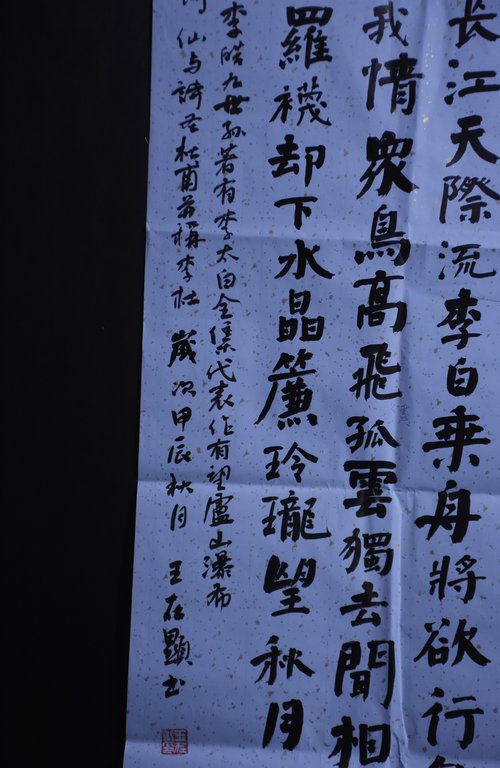 長江天際流李白乘舟將欲行
我情眾鳥高飛孤雲獨去閒相
羅襪却下水晶簾玲瓏望秋月
李皓九世孫著有李太白全集代表作有望盧山瀑布
仙与詩圣杜甫並稱李杜 歲次甲辰秋月 王在顯书